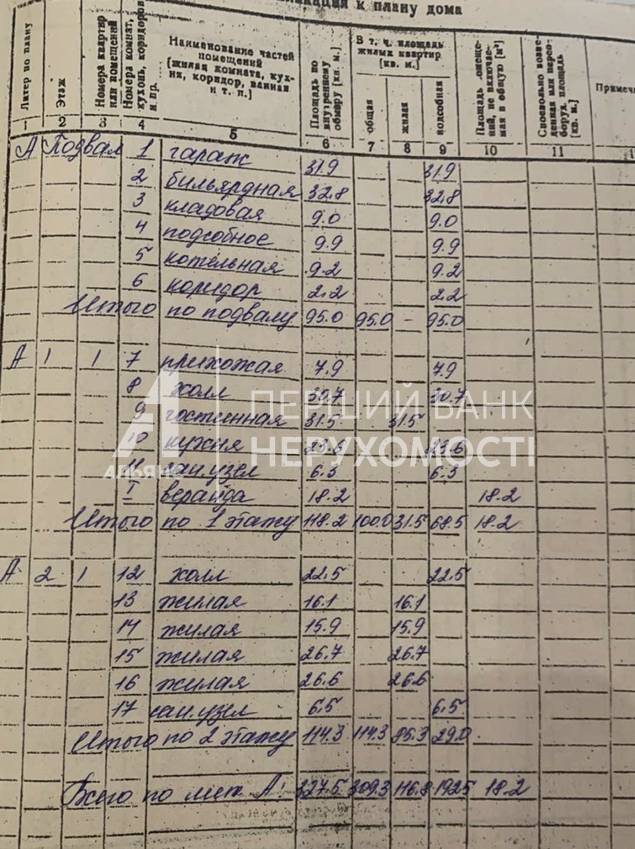 к плану дома
Литер по плану
Этаж
Номера квартир или помещений
Номера комнат, кухонь, коридоров и пр.
Наименование частей помещений (жилая комната, кухня, коридор, ванная и т. п.)
Площадь по внутреннему обмеру (кв. м.)
В т. ч. площадь жилых квартир (кв. м.)
общая
жилая
подсобная
Площадь помещений, не включаемая в общую [м²]
Самовольно возведенная или переоборуд. площадь [кв. м.]
Примеча
1 2 3 4 5 6 7 8 9 10 11
А Подвал 1 гараж 31.9 31.9
2 бильярдная 32.8 32.8
3 кладовая 9.0 9.0
4 подсобное 9.9 9.9
5 котельная 9.2 9.2
6 коридор 2.2 2.2
Итого по подвалу 95.0 95.0 - 95.0
А 1 1 7 прихожая 7.9 7.9
8 холл 30.7 30.7
9 гостинная 31.5 31.5
10 кухня 23.6 23.6
11 сан.узел 6.3 6.3
I веранда 18.2 18.2
Итого по 1 этажу 118.2 100.0 31.5 68.5 18.2
А 2 1 12 холл 22.5 22.5
13 жилая 16.1 16.1
14 жилая 15.9 15.9
15 жилая 26.7 26.7
16 жилая 26.6 26.6
17 сан.узел 6.5 6.5
Итого по 2 этажу 114.3 114.3 85.3 29.0
Всего по лит. А: 327.5 309.3 116.8 192.5 18.2
ПЕРШИЙ БАНК
НЕРУХОМОСТІ